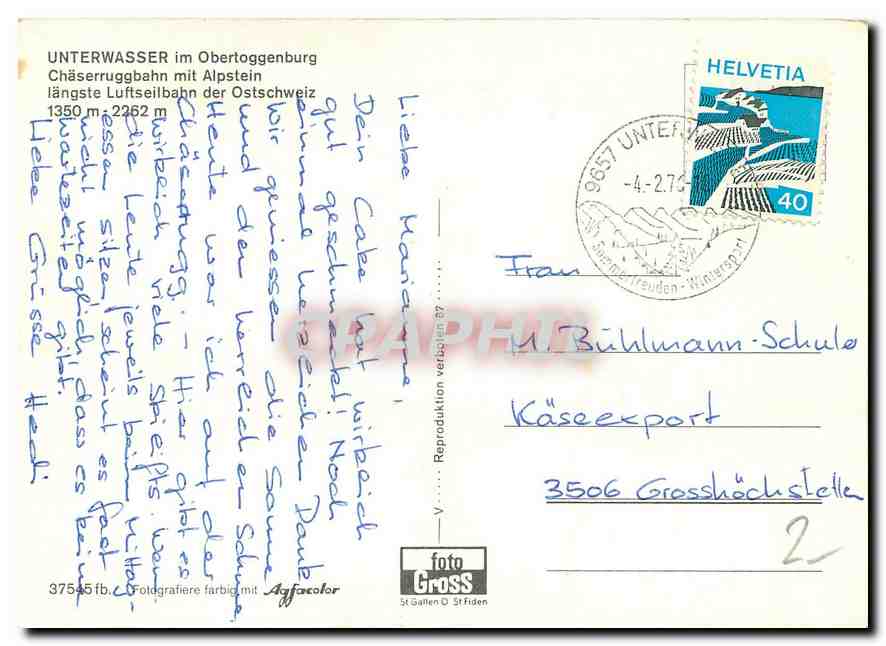 UNTERWASSER im Obertoggenburg
Chäserruggbahn mit Alpstein
längste Luftseilbahn der Ostschweiz
1350 m - 2262 m
Liebe Marianne,
Dein Cake hat wirklich
gut geschmeckt! Noch
einmal herzlichen Dank
Wir geniessen die Sonne
und den herrlichen Schnee
Heute war ich auf der
Chäserrugg. - Hier gibt es
wirklich viele
die Leute jeweils beim Mittag-
essen sitzen scheint es fast
nicht möglich, dass es keine
Wartezeiten gibt.
Liebe Grüsse Hedi
37545 fb. Fotografiere farbig mit Agfacolor
V Reproduktion verboten 87
CPAPHIL
foto
Gross
St Gallen D St Fiden
HELVETIA
40
9657 UNTER
-4.-2.7
Sommerfreuden - Wintersport
Frau
M. Bühlmann-Schule
Käseexport
3506 Grosshöchstetten
2